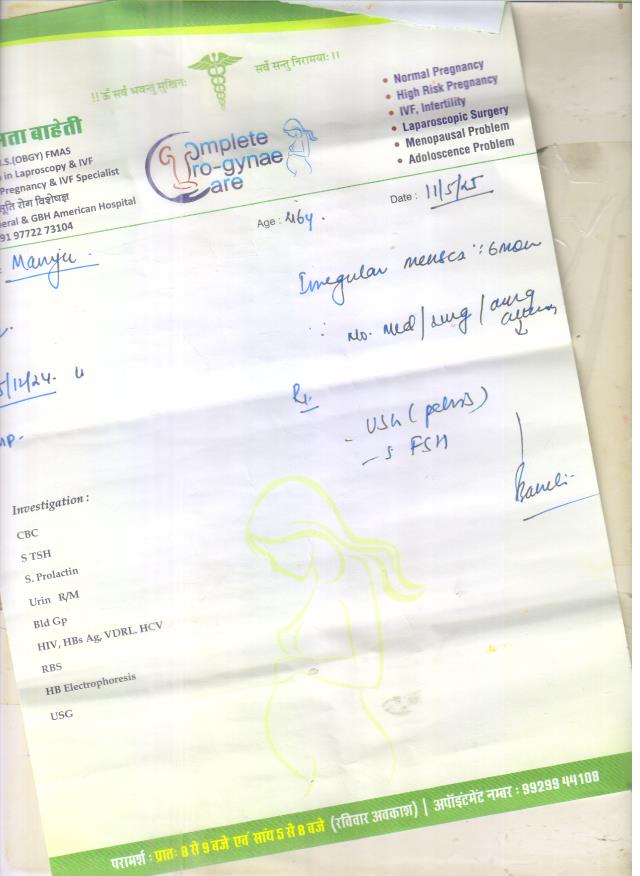 !!ॐ सर्वे भवन्तु सुखिनः सर्वे सन्तु निरामयाः।।
ता बाहेती
.S.(OBGY) FMAS
in Laproscopy & IVF
Pregnancy & IVF Specialist
सूति रोग विशेषज्ञ
eral & GBH American Hospital
91 97722 73104
Complete
Uro-gynae
Care
• Normal Pregnancy
• High Risk Pregnancy
• IVF, Infertility
• Laparoscopic Surgery
• Menopausal Problem
• Adoloscence Problem
Date : 11/5/25
Age : 46y.
Manju.
Irregular menses : 6mon
No. med/surg/
5/12/24.
Rx.
- USG (pelvis)
- S FSH
Investigation :
CBC
S TSH
S. Prolactin
Urin R/M
Bld Gp
HIV, HBs Ag, VDRL. HCV
RBS
HB Electrophoresis
USG
परामर्श : प्रातः 8 से 9 बजे एवं सांय 5 से 8 बजे (रविवार अवकाश) | अपॉइंटमेंट नम्बर : 99299 44108